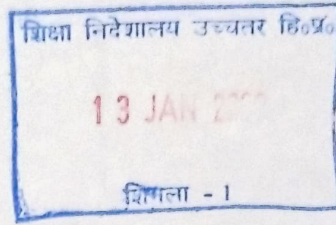 शिक्षा निदेशालय उच्चतर हि०प्र०
13 JAN
शिमला - 1